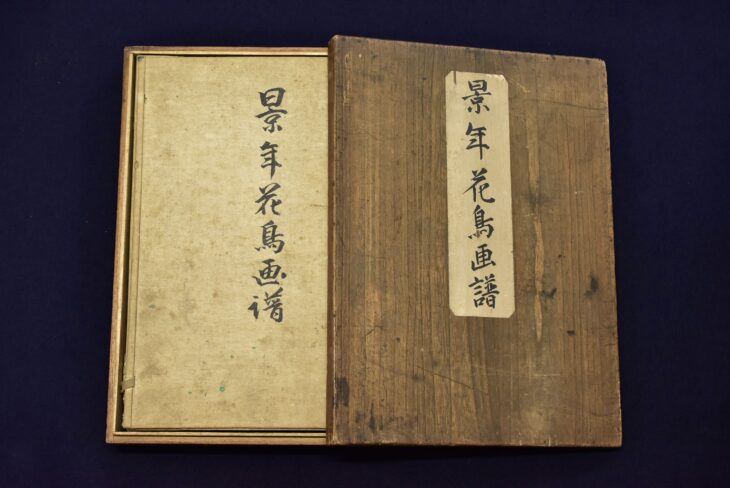 景年花鳥画譜
景年花鳥画譜